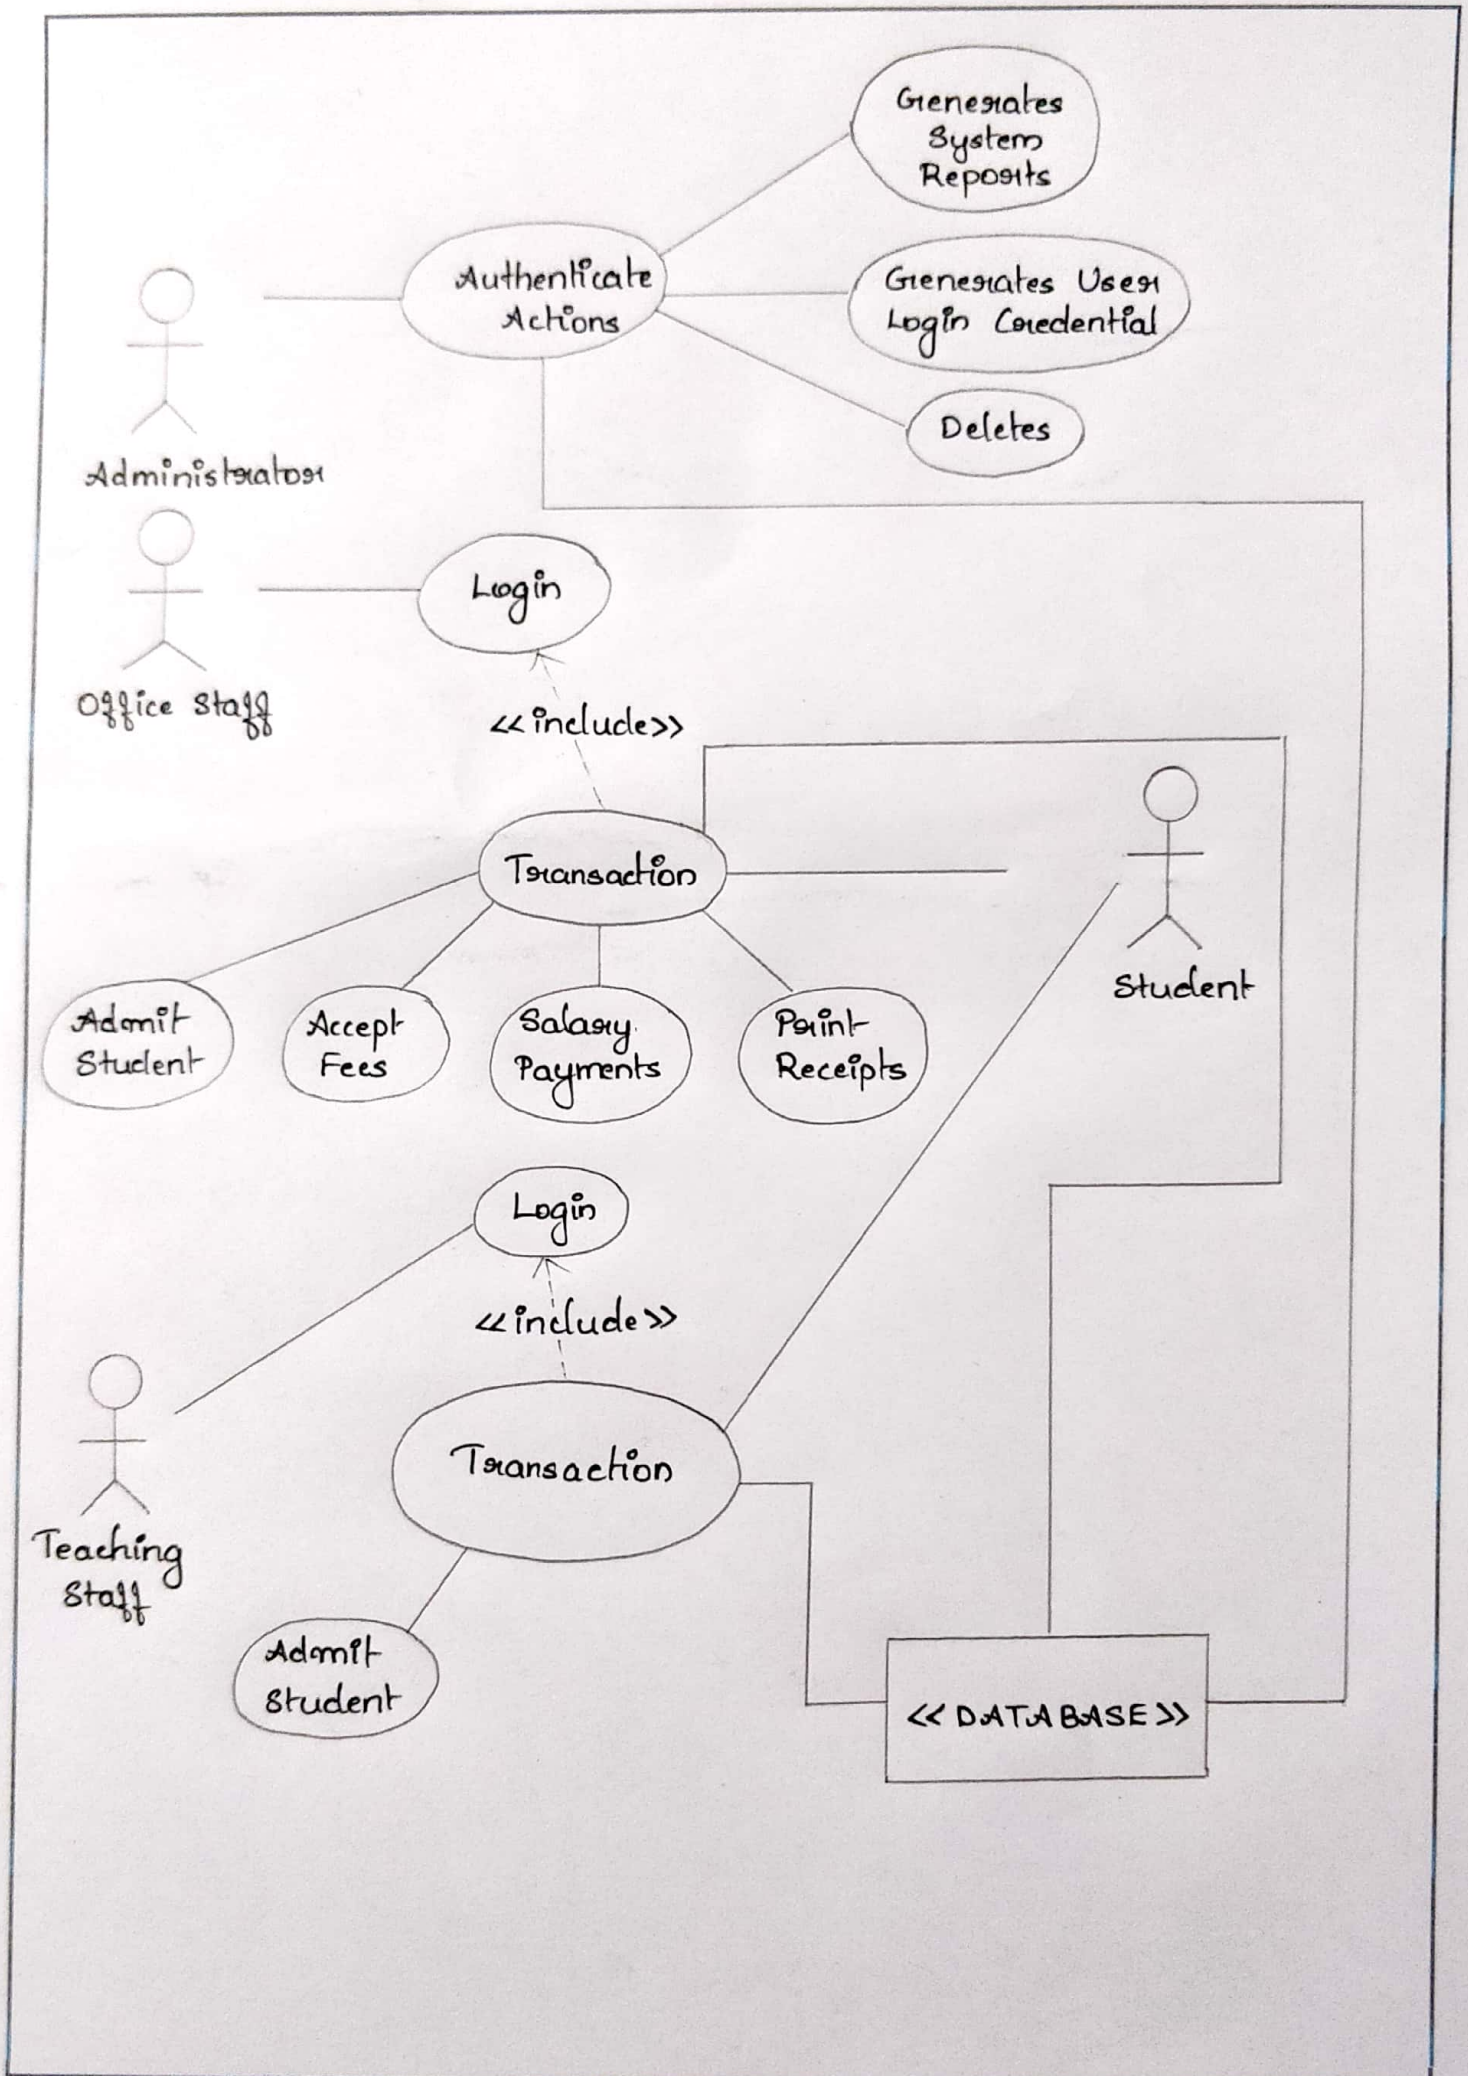 Generates
System
Reports
Authenticate
Actions
Generates User
Login Credential
Deletes
Administrator
Login
Office Staff
<<include>>
Transaction
Student
Admit
Student
Accept
Fees
Salary
Payments
Print
Receipts
Login
<<include>>
Transaction
Teaching
Staff
Admit
Student
<<DATABASE>>